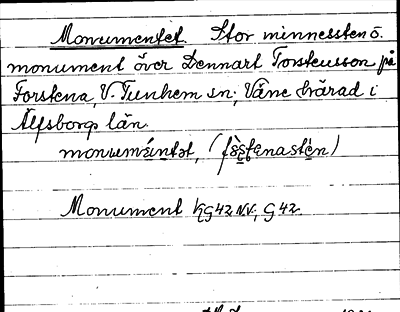 Monumentet. Stor minnessten o.
monument över Lennart Torstensson på
Forstena, V. Tunhem sn; Väne härad i
Älfsborgs län.
Monument KG 42 NV; G 42.